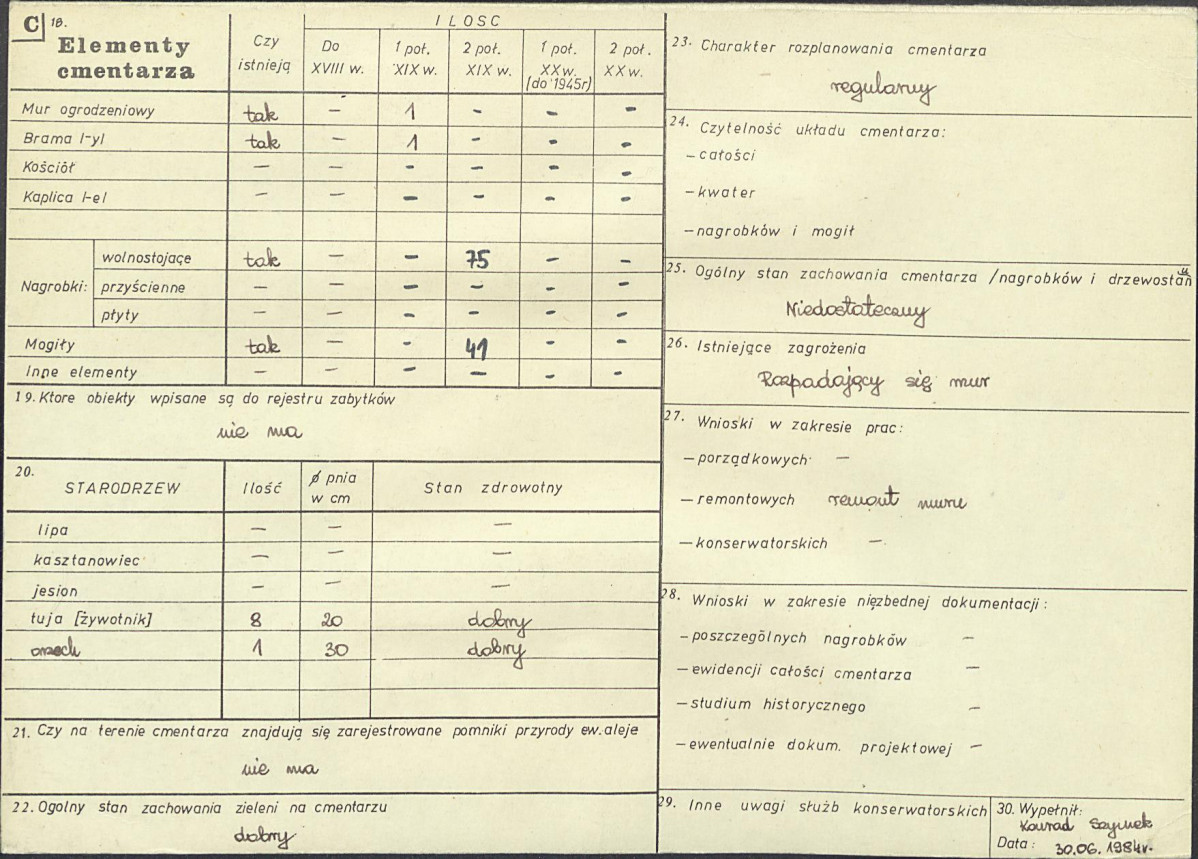 C 18.
Elementy cmentarza
Czy istnieją
ILOSC
Do XVIII w.
1 poł. XIX w.
2 poł. XIX w.
1 poł. XX w. (do 1945r)
2 poł. XX w.
Mur ogrodzeniowy tak — 1 - - -
Brama /-y/ tak — 1 - - -
Kościół — — - - - -
Kaplica /-e/ — — - - - -
Nagrobki:
wolnostojące tak — - 75 - -
przyścienne — — - - - -
płyty — — - - - -
Mogiły tak — - 41 - -
Inne elementy — — - - - -
19. Ktore obiekty wpisane są do rejestru zabytków
nie ma
20.
STARODRZEW Ilość ø pnia w cm Stan zdrowotny
lipa — — —
kasztanowiec — — —
jesion — — —
tuja [żywotnik] 8 20 dobry
orzech 1 30 dobry
21. Czy na terenie cmentarza znajdują się zarejestrowane pomniki przyrody ew. aleje
nie ma
22. Ogolny stan zachowania zieleni na cmentarzu
dobry
23. Charakter rozplanowania cmentarza
regularny
24. Czytelność układu cmentarza:
- całości
- kwater
- nagrobków i mogił
25. Ogólny stan zachowania cmentarza /nagrobków i drzewostanu
Niedostateczny
26. Istniejące zagrożenia
Rozpadający się mur
27. Wnioski w zakresie prac:
- porządkowych —
- remontowych remont muru
- konserwatorskich —
28. Wnioski w zakresie nięzbednej dokumentacji:
- poszczególnych nagrobków —
- ewidencji całości cmentarza —
- studium historycznego —
- ewentualnie dokum. projektowej —
29. Inne uwagi służb konserwatorskich
30. Wypełnił:
Konrad Szymek
Data: 30.06.1984r.